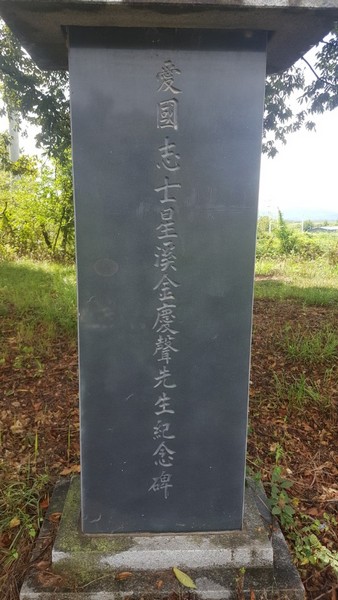 愛國志士星溪金慶聲先生紀念碑